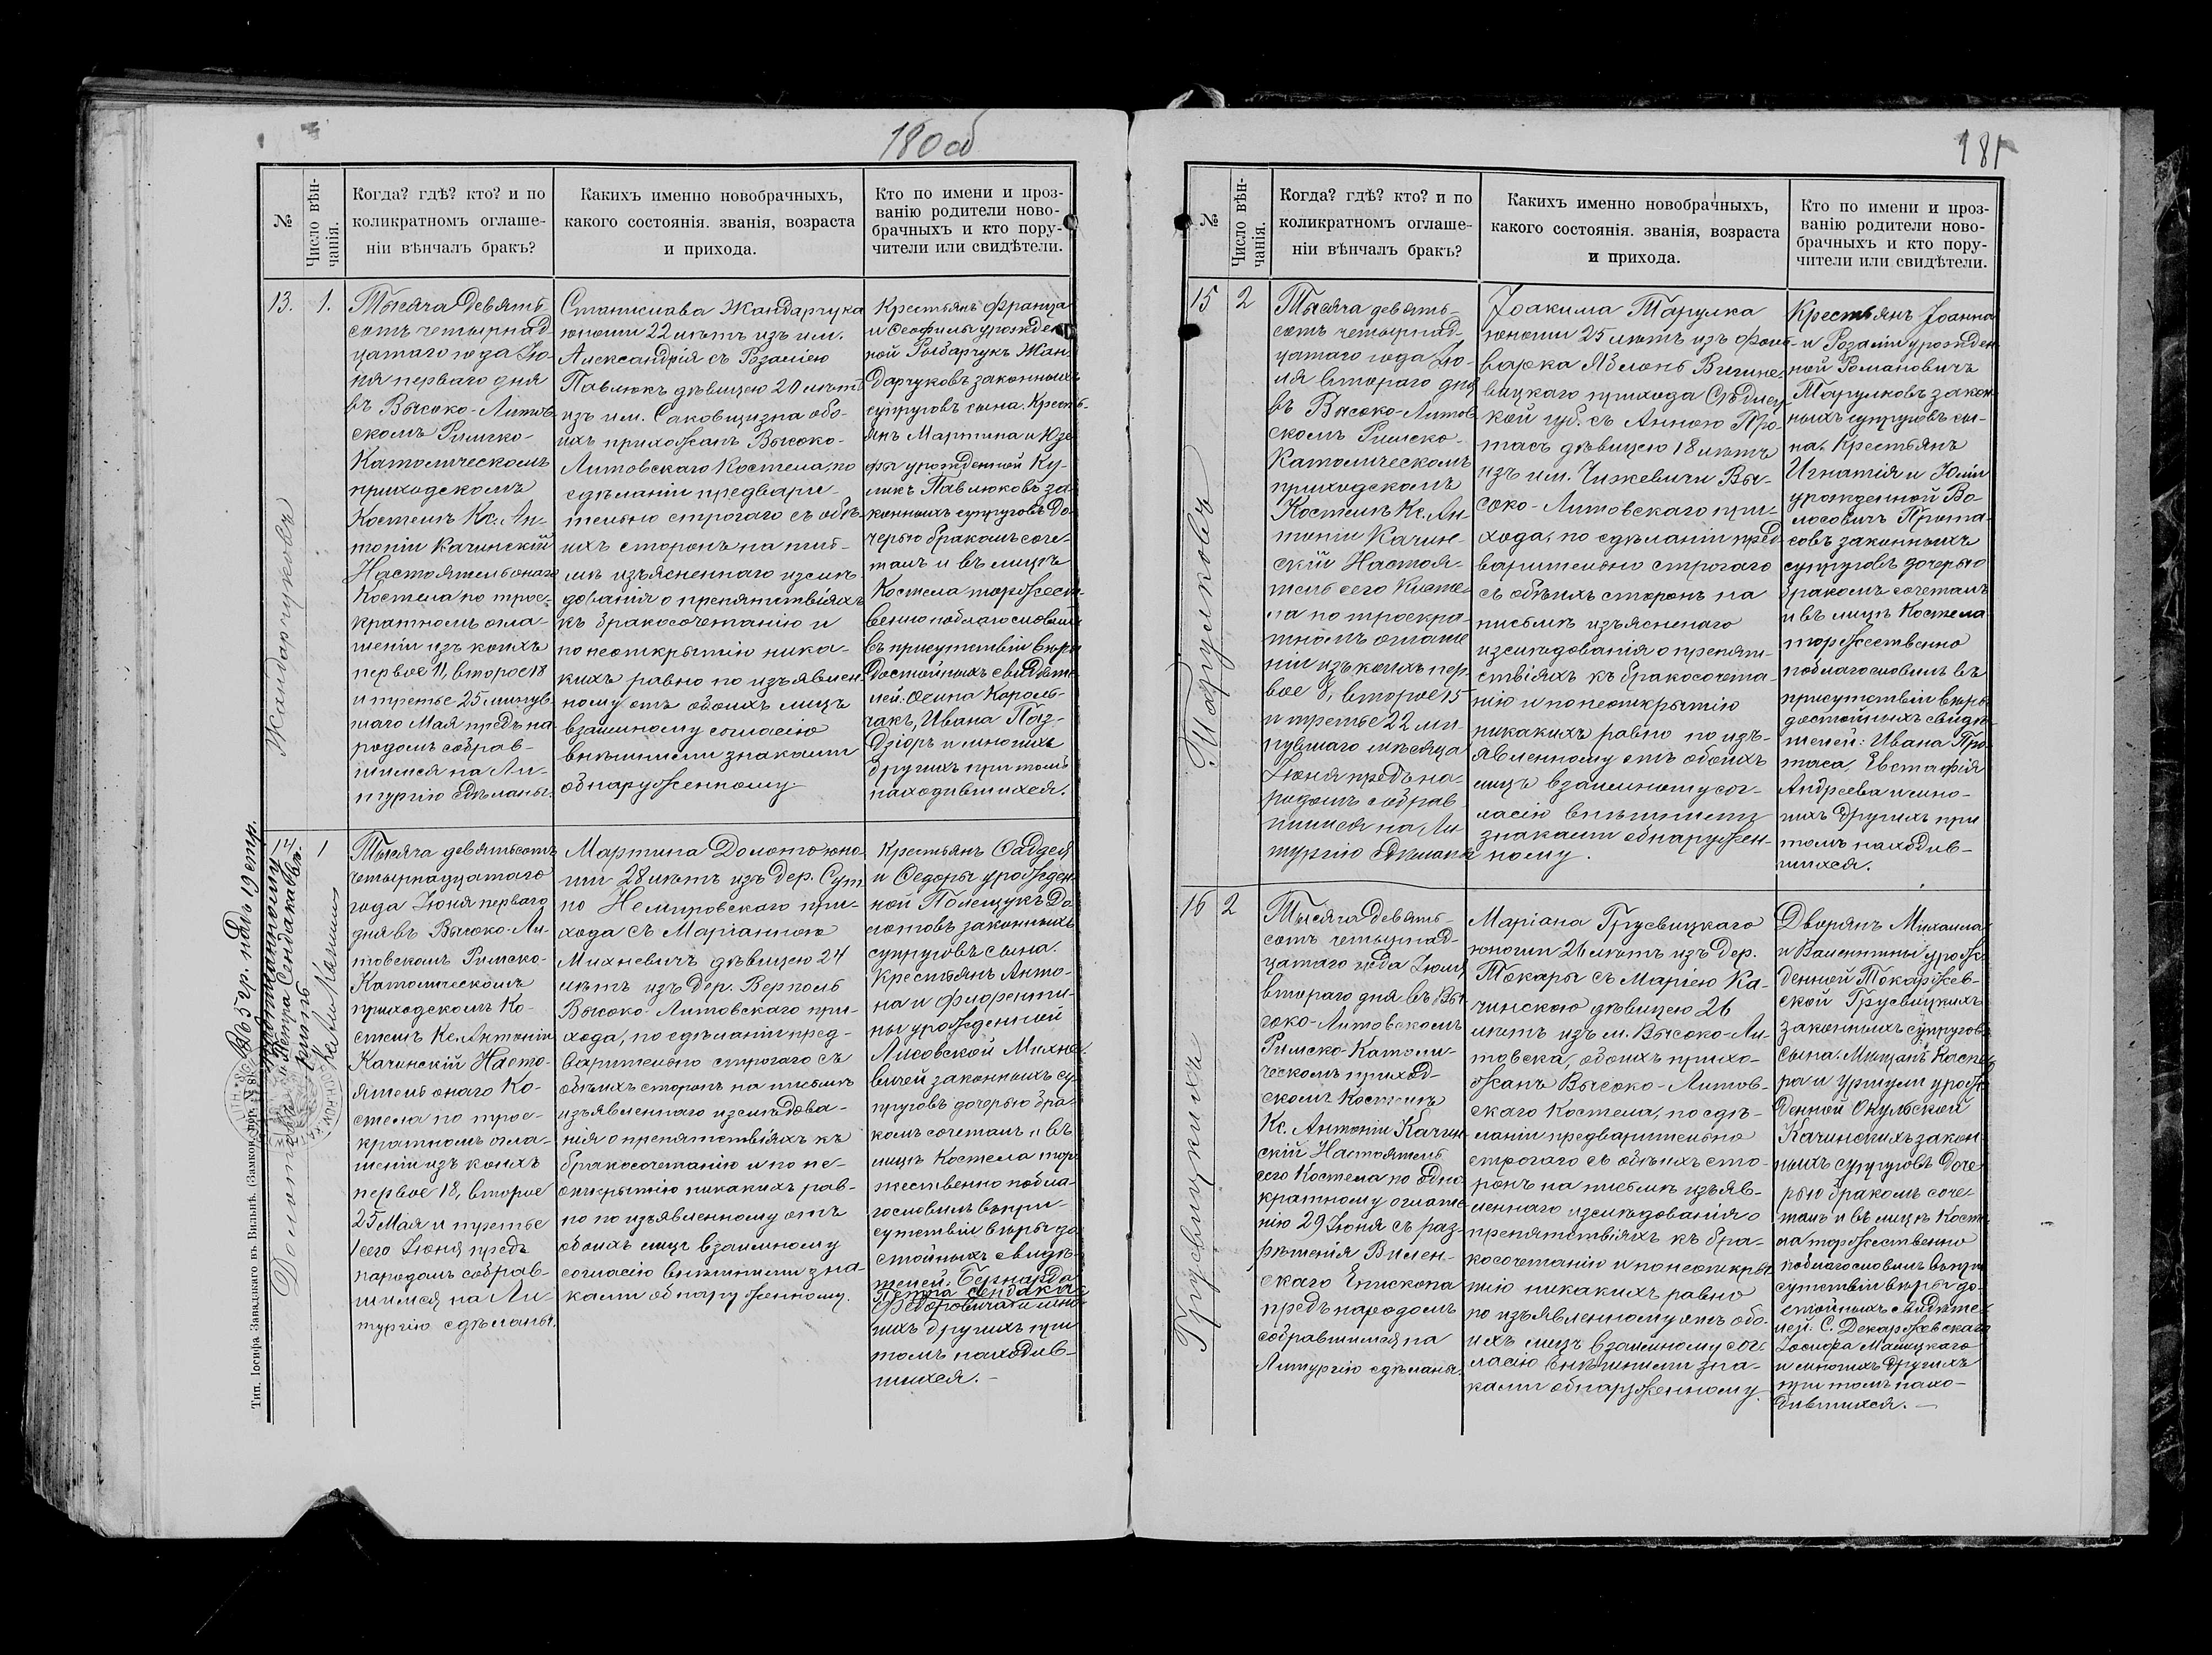 180 об
№
Число вѣн-
чанія.
Когда? гдѣ? кто? и по
коликратномъ оглаше-
ніи вѣнчалъ бракъ?
Какихъ именно новобрачныхъ,
какого состоянія. званія, возраста
и прихода.
Кто по имени и проз-
ванію родители ново-
брачныхъ и кто пору-
чители или свидѣтели.
13.
1.
Жандарчуковъ
Тысяча девять
сотъ четырнад
цатаго года Ію-
ня перваго дня
въ Высоко-Литов
скомъ Римско-
Католическомъ
приходскомъ
Костелѣ Кс. Ан-
тоніи Качинскій
Настоятель онаго
Костела по трое-
кратномъ огла-
шеніи изъ коихъ
первое 11, второе 18
и третье 25 минув
шаго Мая предъ на
родомъ собрав-
шимся на Ли-
тургію сдѣланы.
Станислава Жандарчука
юношу 22 лѣтъ изъ им.
Александрія съ Розаліею
Павлюкъ дѣвицею 20 лѣтъ
изъ им. Саковщизна обо-
ихъ прихожанъ Высоко-
Литовскаго Костела, по
сдѣланіи предвари-
тельно строгаго съ обѣ-
ихъ сторонъ на пись-
мѣ изъясненнаго изслѣ-
дованія о препятствіяхъ
къ бракосочетанію и
по неоткрытію ника-
кихъ равно по изъявлен
ному отъ обоихъ лицъ
взаимному согласію
внѣшними знаками
обнаруженному
Крестьянъ Франца
и Ѳеофилы урожден
ной Рыбарчукъ Жан
дарчуковъ законныхъ
супруговъ сына. Кресть-
янъ Мартина и Юзе
фы урожденной Ку-
ликъ Павлюковъ за-
конныхъ супруговъ до-
черью бракомъ соче-
талъ и въ лицѣ
Костела торжест-
венно поблагословилъ
въ присутствіи вѣро
достойныхъ свидѣте
лей: Осипа Король-
чакъ, Ивана Поз-
дзіоръ и многихъ
другихъ при томъ
находившихся.
14
1
Долотовъ
Тысяча девятьсотъ
четырнадцатаго
года Іюня перваго
дня въ Высоко-Ли-
товскомъ Римско-
Католическомъ
приходскомъ Ко-
стелѣ Кс. Антоніи
Качинскій Насто-
ятель онаго Ко-
стела по трое-
кратномъ огла-
шеніи изъ коихъ
первое 18, второе
25 Мая и третье
1 сего Іюня предъ
народомъ собрав-
шимся на Ли-
тургію сдѣланы.
Мартина Долото юно-
шу 28 лѣтъ изъ дер. Сут
но Немировскаго при-
хода съ Маріанною
Михневичъ дѣвицею 24
лѣтъ изъ дер. Верполь
Высоко-Литовскаго при-
хода, по сдѣланіи пред-
варительно строгаго съ
обѣихъ сторонъ на письмѣ
изъявленнаго изслѣдова-
нія о препятствіяхъ къ
бракосочетанію и по не-
открытію никакихъ рав-
но по изъявленному отъ
обоихъ лицъ взаимному
согласію внѣшними зна-
ками обнаруженному.
Крестьянъ Ѳаддея
и Ѳедоры урожден-
ной Полещукъ До-
лотовъ законныхъ
супруговъ сына.
Крестьянъ Анто-
на и Флоренти-
ны урожденной
Лисовской Михне-
вичей законныхъ су-
пруговъ дочерью бра-
комъ сочеталъ и въ
лицѣ Костела тор-
жественно побла-
гословилъ въ при-
сутствіи вѣро до
стойныхъ свидѣ-
телей: Бернарда
Петра Сендака
Федоровича и мно
гихъ другихъ при
томъ находив-
шихся.-
Въ 5 гр. надъ 19 стр.
Петра Сендака
Тип. Іосифа Завадзкаго въ Вильнѣ.
181
№
Число вѣн-
чанія.
Когда? гдѣ? кто? и по
коликратномъ оглаше-
ніи вѣнчалъ бракъ?
Какихъ именно новобрачныхъ,
какого состоянія. званія, возраста
и прихода.
Кто по имени и проз-
ванію родители ново-
брачныхъ и кто пору-
чители или свидѣтели.
15
2
Тарулковъ
Тысяча девять-
сотъ четырнад-
цатаго года Ію-
ля втораго дня
въ Высоко-Литов
скомъ Римско-
Католическомъ
приходскомъ
Костелѣ Кс. Ан-
тоніи Качин-
скій Настоя-
тель сего Косте-
ла по троекра-
тномъ оглаше
ніи изъ коихъ пер
вое 8, второе 15
и третье 22 ми-
нувшаго мѣсяца
Іюня предъ на-
родомъ собрав
шимся на Ли
тургію сдѣланы
Іоакима Тарулка
юношу 25 лѣтъ изъ фоль-
варка Яблонь Вигине-
вицкаго прихода Сѣдлец
кой губ. съ Анною Про-
тасъ дѣвицею 18 лѣтъ
изъ им. Чижевичи Вы-
соко-Литовскаго при-
хода, по сдѣланіи пред
варительно строгаго
съ обѣихъ сторонъ на
письмѣ изъясненаго
изслѣдованія о препят-
ствіяхъ къ бракосочета-
нію и по неоткрытію
никакихъ равно по изъ-
явленному отъ обоихъ
лицъ взаимному сог-
ласію внѣшними
знаками обнаружен-
ному.
Крестьянъ Іоанна
и Розаліи урожден
ной Романовичъ
Тарулковъ закон
ныхъ супруговъ сы-
на. Крестьянъ
Игнатія и Юліи
урожденной Во-
лосовичъ Прота-
совъ законныхъ
супруговъ дочерью
бракомъ сочеталъ
и въ лицѣ Костела
торжественно
поблагословилъ въ
присутствіи вѣро
достойныхъ свидѣ-
телей: Ивана Про
таса, Евстафія
Андреева и мно-
гихъ другихъ при
томъ находив-
шихся.
16
2
Грусвицкихъ
Тысяча девять-
сотъ четырнад-
цатаго года Іюля
втораго дня въ Вы
соко-Литовскомъ
Римско-Католи-
ческомъ приход-
скомъ Костелѣ
Кс. Антоніи Качин-
скій Настоятель
сего Костела по одно
кратному оглаше
нію 29 Іюня съ раз-
рѣшенія Вилен-
скаго Епископа
предъ народомъ
собравшимся на
Литургію сдѣланы.
Маріана Грусвицкаго
юношу 26 лѣтъ изъ дер.
Токары съ Маріею Ка-
чинскою дѣвицею 26
лѣтъ изъ м. Высоко-Ли-
товска, обоихъ прихо-
жанъ Высоко-Литов-
скаго Костела, по сдѣ-
ланіи предварительно
строгаго съ обѣихъ сто-
ронъ на письмѣ изъяв-
леннаго изслѣдованія о
препятствіяхъ къ бра-
косочетанію и по неоткры
тію никакихъ равно
по изъявленному отъ обо-
ихъ лицъ взаимному сог-
ласію внѣшними зна-
ками обнаруженному
Дворянъ Михаила
и Валентины урож-
денной Токаржев-
ской Грусвицкихъ
законныхъ супруговъ
сына. Мѣщанъ Каспе
ра и Уршули урож-
денной Окульской
Качинскихъ закон-
ныхъ супруговъ доче
рью бракомъ соче-
талъ и въ лицѣ Косте
ла торжественно
поблагословилъ въ при
сутствіи вѣро до-
стойныхъ свидѣте-
лей: С. Декаржевскаго
Іосифа Малицкаго
и многихъ другихъ
при томъ нахо-
дившихся.-